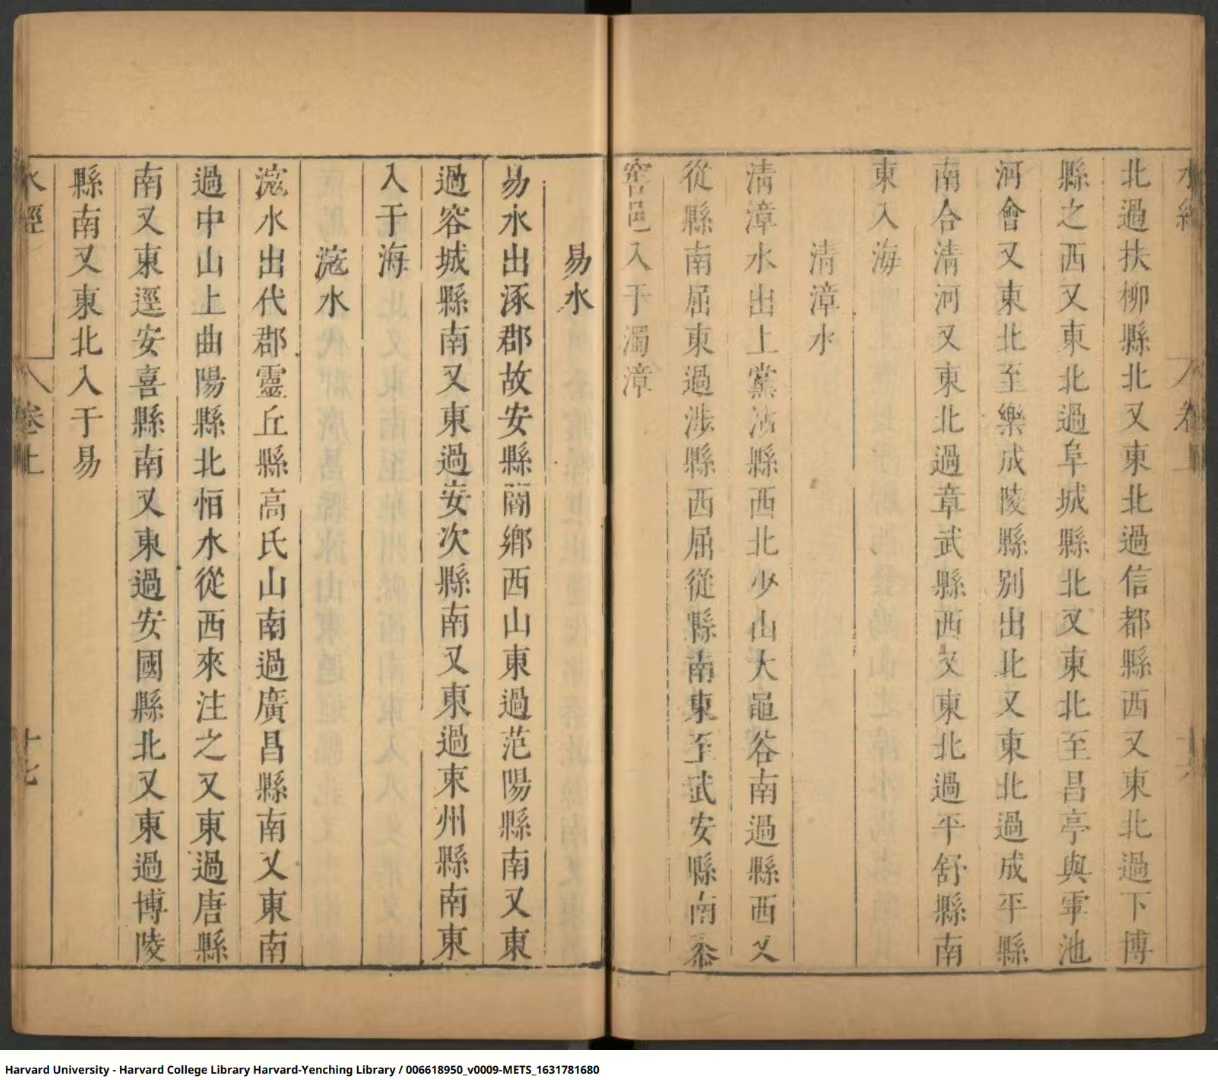 北過扶柳縣北又東北過信都縣西又東北過下博
縣之西又東北過阜城縣北又東北至昌亭與虖池
河會又東北至樂成陵縣別出北又東北過成平縣
南合清河又東北過章武縣西又東北過平舒縣南
東入海
清漳水
清漳水出上黨沾縣西北少山大黽谷南過縣西又
從縣南屈東過涉縣西屈從縣南東至武安縣南黍
窖邑入于濁漳
易水
易水出涿郡故安縣閻鄉西山東過范陽縣南又東
過容城縣南又東過安次縣南又東過束州縣南東
入于海
滱水
滱水出代郡靈丘縣高氏山南過廣昌縣南又東南
過中山上曲陽縣北恒水從西來注之又東過唐縣
南又東逕安喜縣南又東過安國縣北又東過博陵
縣南又東北入于易
水經 卷上 十七
Harvard University - Harvard College Library Harvard-Yenching Library / 006618950_v0009-METS_1631781680